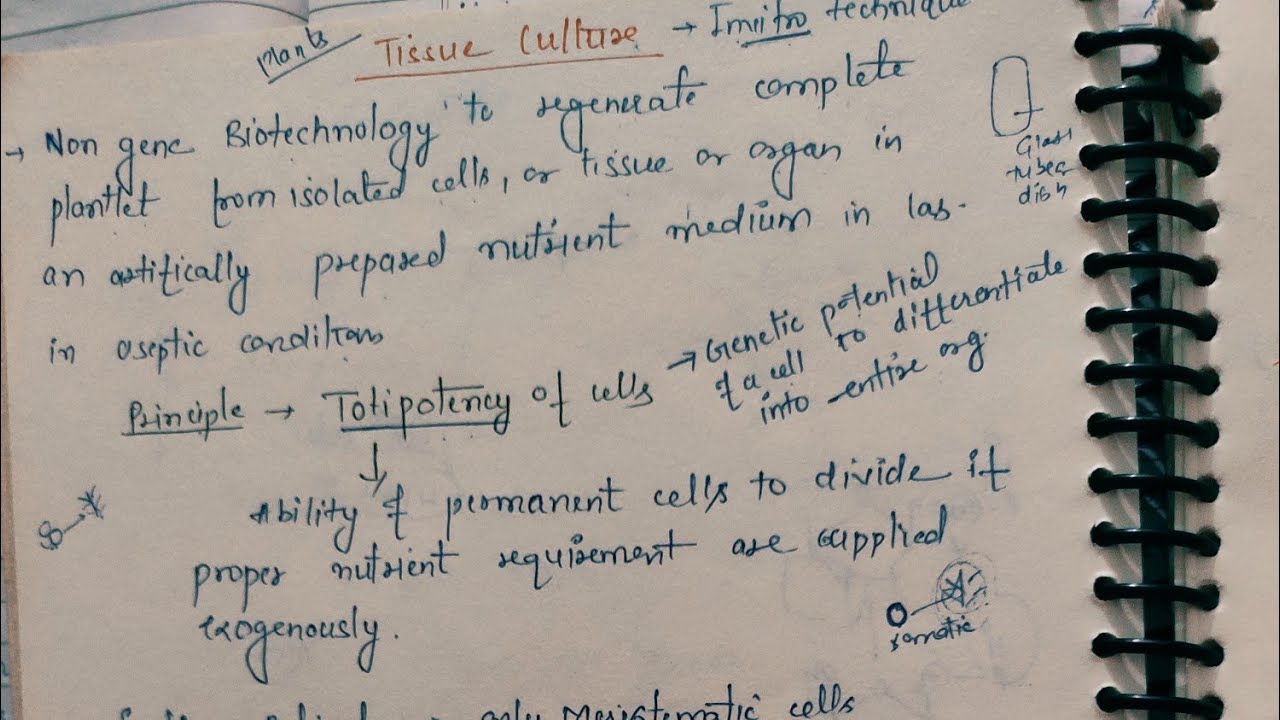 Plants Tissue Culture → Invitro technique
→ Non gene Biotechnology to regenerate complete
plantlet from isolated cells, or tissue or organ in
an artifically prepared nutrient medium in lab.
in aseptic conditions
Glass
tubes
dish
Principle → Totipotency of cells → Genetic potential
of a cell to differentiate
into entire org.
↓
Ability of permanent cells to divide if
proper nutrient requirement are supplied
exogenously.
somatic
only Meristematic cells